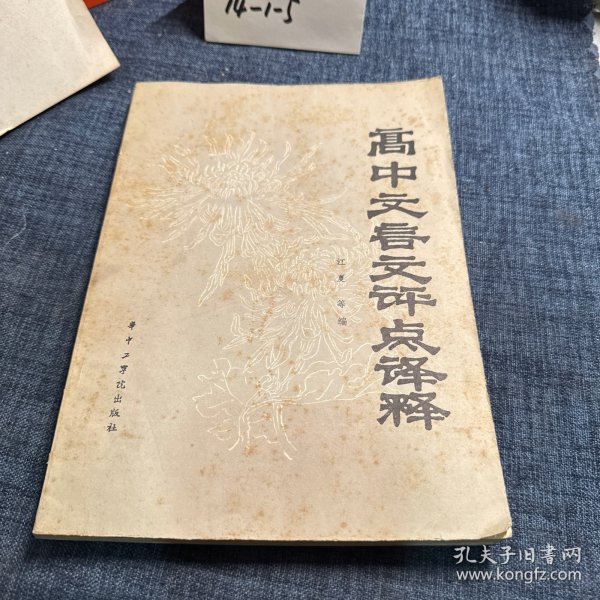 14-1-5
高中文言文评点译释
江夏 等编
华中工学院出版社
孔夫子旧書网
www.kongfz.com